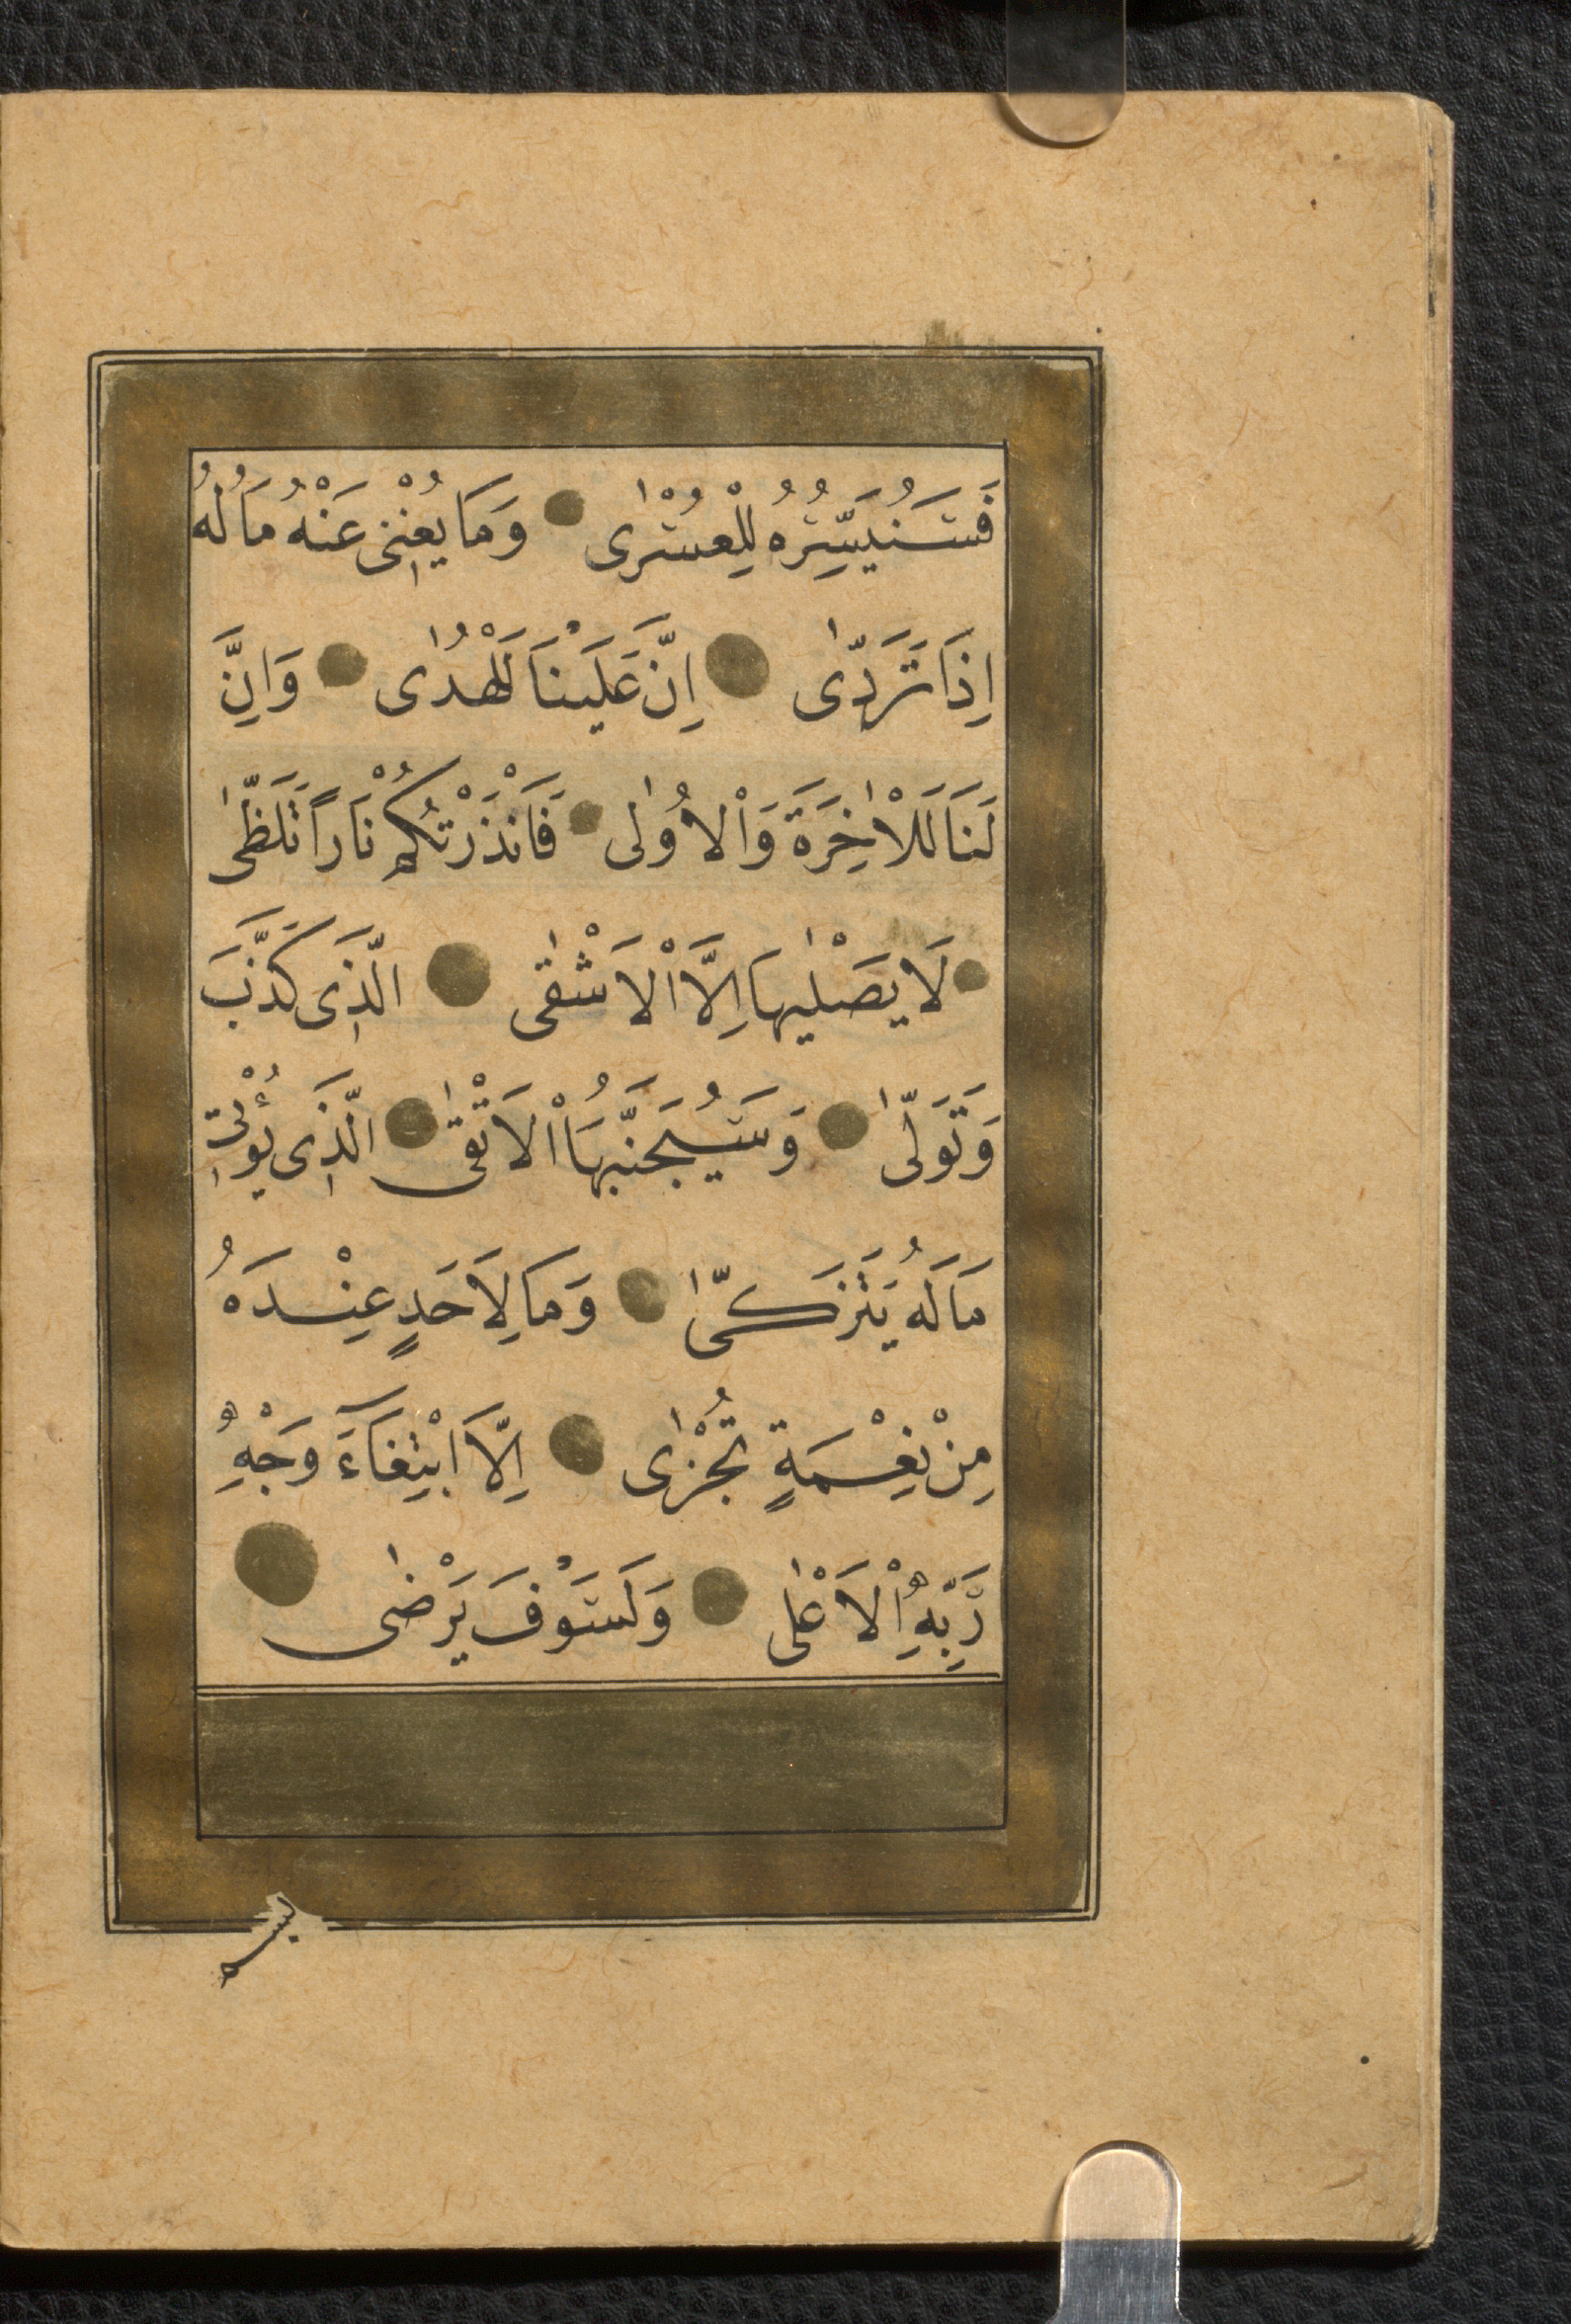 فَسَنُيَسِّرُهُ لِلْعُسْرٰى وَمَا يُغْنٖى عَنْهُ مَالُهُ
اِذَا تَرَدّٰى اِنَّ عَلَيْنَا لَلْهُدٰى وَاِنَّ
لَنَا لَلْاٰخِرَةَ وَاْلاُولٰى فَاَنْذَرْتُكُمْ نَاراً تَلَظّٰى
لَا يَصْلٰيهَا اِلَّا اْلاَشْقٰى الَّذٖى كَذَّبَ
وَتَوَلّٰى وَسَيُجَنَّبُهَا اْلاَتْقٰى الَّذٖى يُؤْتٖى
مَالَهُ يَتَزَكّٰى وَمَا لِاَحَدٍ عِنْدَهُ
مِنْ نِعْمَةٍ تُجْزٰى اِلَّا ابْتِغَآءَ وَجْهِ
رَبِّهِ اْلاَعْلٰى وَلَسَوْفَ يَرْضٰى
بسم